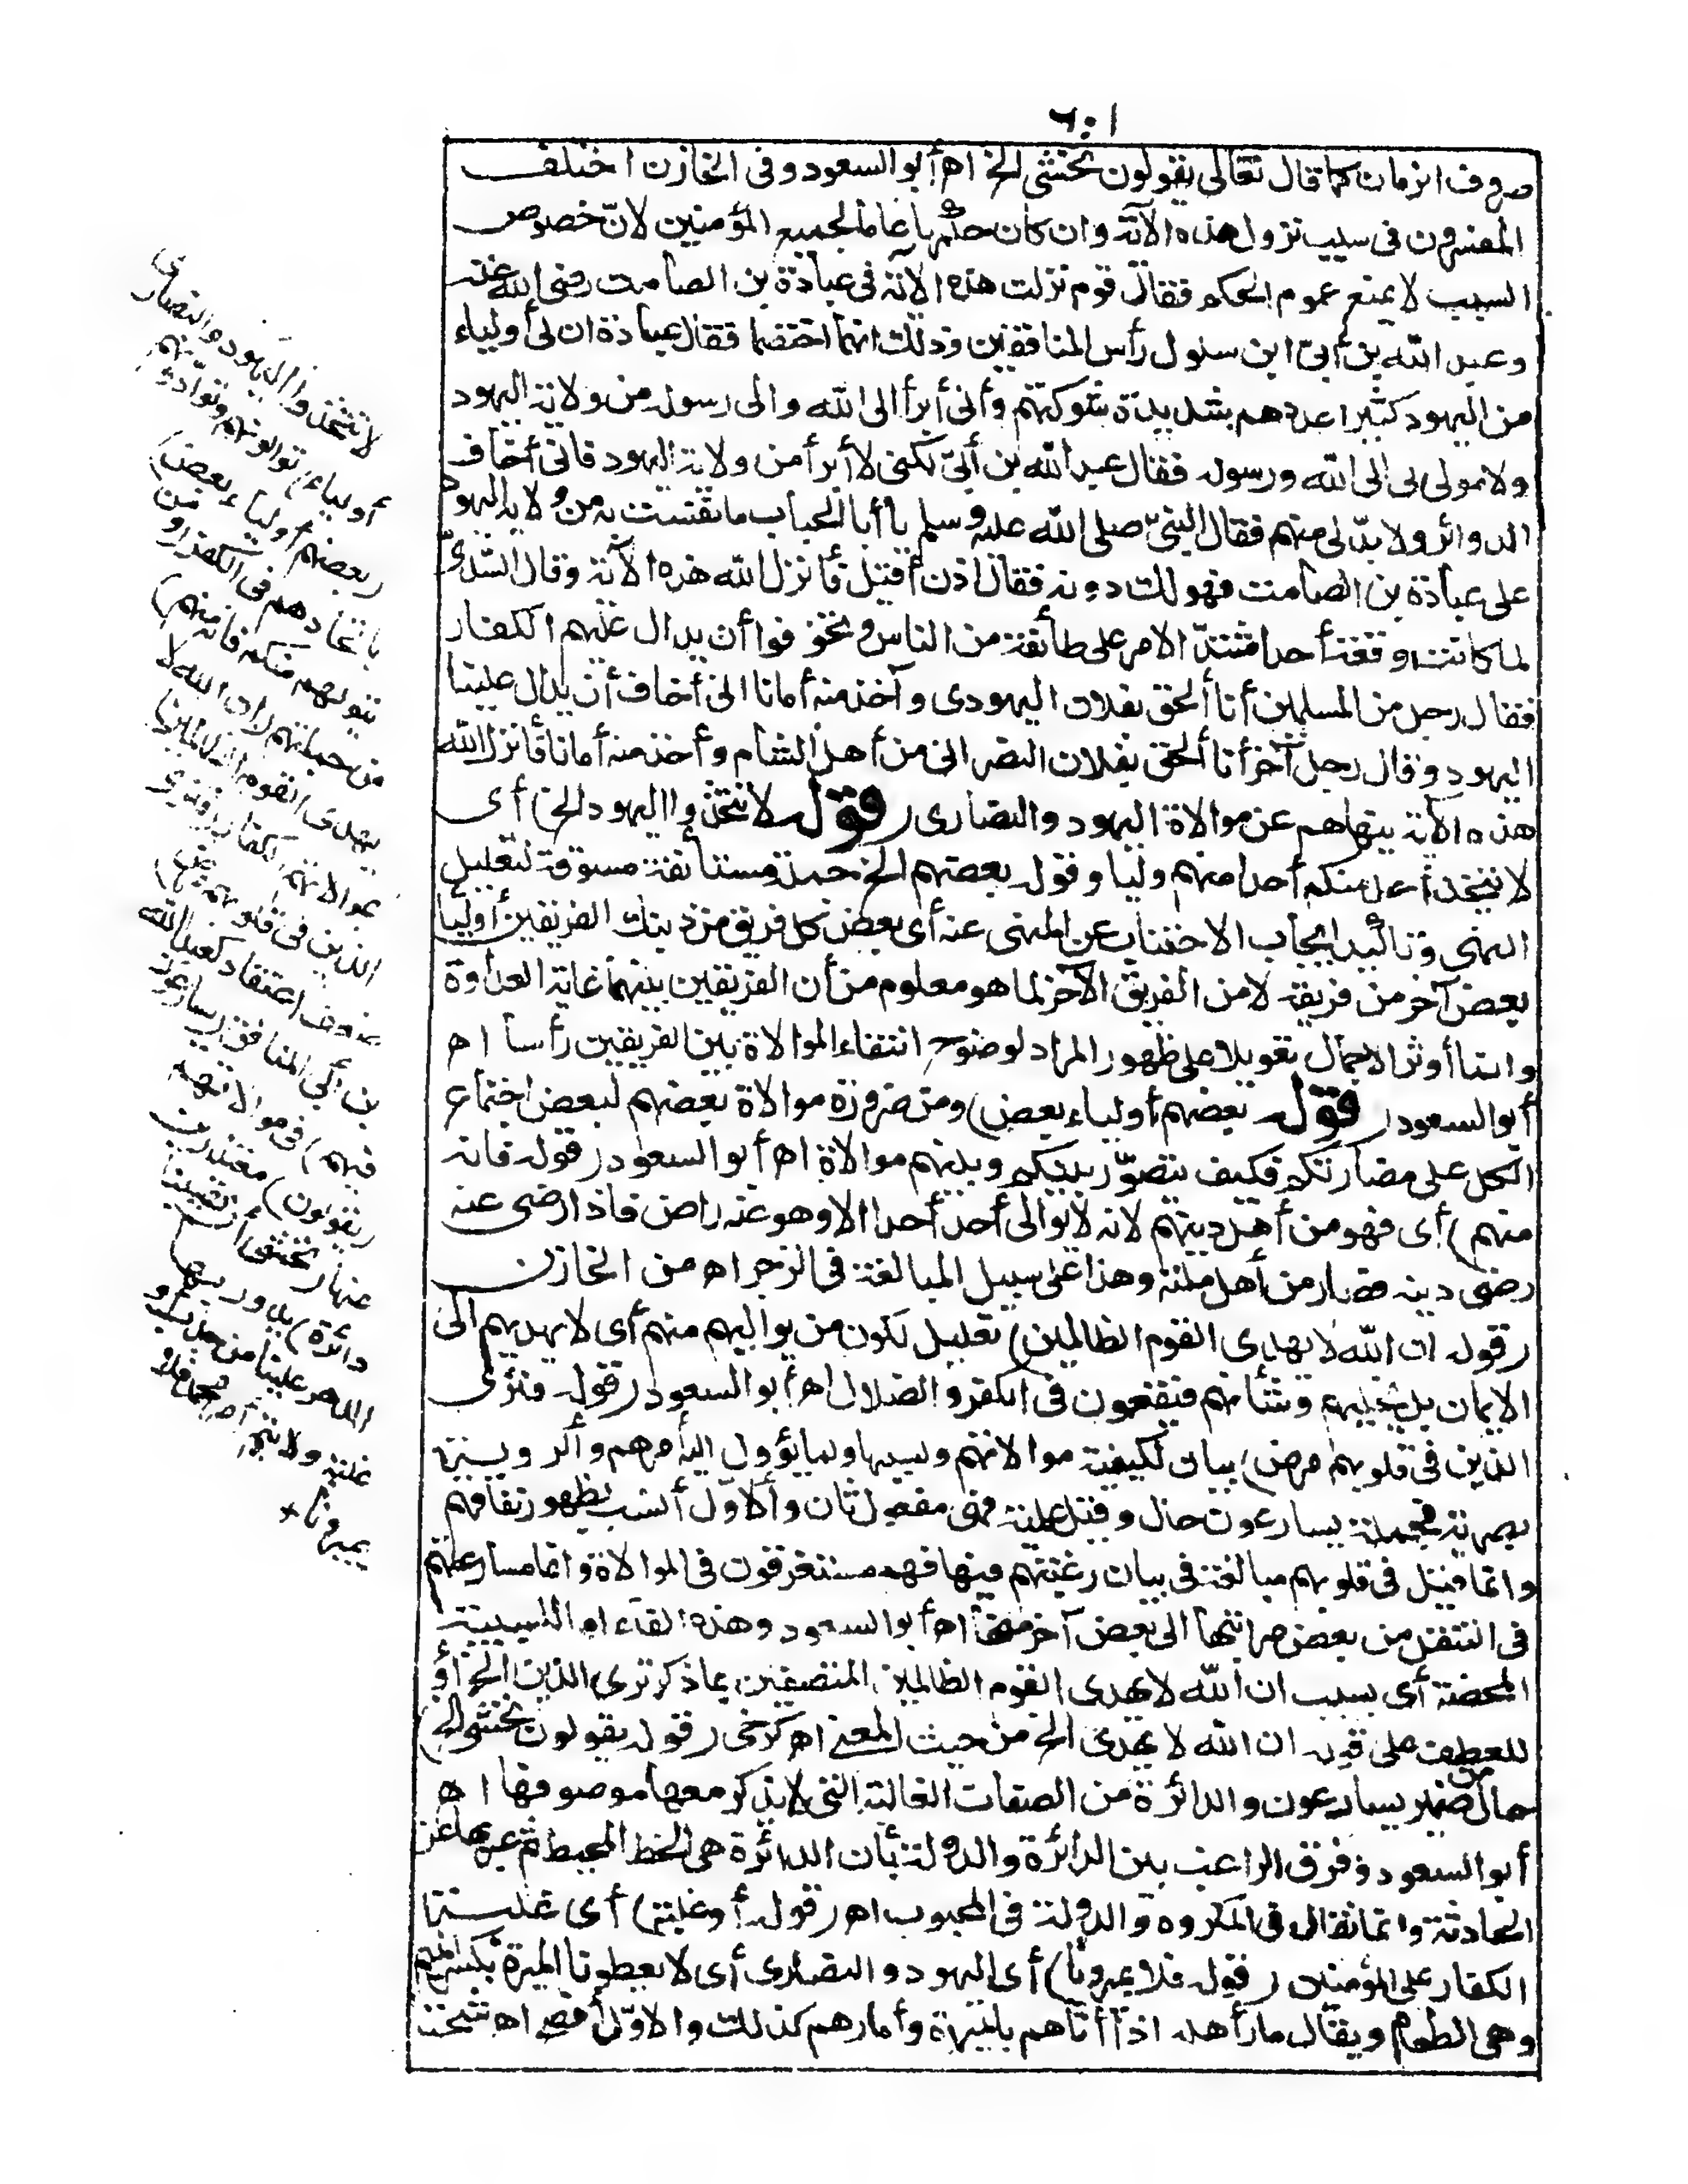 ٦٠١
صروف الزمان كما قال تعالى يقولون نخشى الخ اه أبو السعود وفى الخازن اختلف
المفسرون فى سبب نزول هذه الآية وان كان حكمها عاما لجميع المؤمنين لانّ خصوص
السبب لا يمنع عموم الحكم فقال قوم نزلت هذه الآية فى عبادة بن الصامت رضى الله عنه
وعبد الله بن أبىّ ابن سلول رأس المنافقين وذلك انهما اختصما فقال عبادة ان لى أولياء
من اليهود كثيرا عددهم شديدة شوكتهم وأنى أبرأ الى الله والى رسوله من ولاية اليهود
ولا مولى لى الى الله ورسوله فقال عبد الله بن أبىّ لكنى لا أبرأ من ولاية اليهود فانى أخاف
الدوائر ولا بدّ لى منهم فقال النبىّ صلى الله عليه وسلم يا أبا الحباب ما نفست به من ولاية اليهود
على عبادة بن الصامت فهو لك دونه فقال اذن أقبل فأنزل الله هذه الآية وقال السّدىّ
لما كانت وقعة أحد اشتدّ الامر على طائفة من الناس وتخوّفوا أن يدال عليهم الكفار
فقال رجل من المسلمين أنا ألحق بفلان اليهودى وآخذ منه أمانا انى أخاف أن يدال علينا
اليهود وقال رجل آخر أنا ألحق بفلان النصرانى من أهل الشام وأخذ منه أمانا فأنزل الله
هذه الآية ينهاهم عن موالاة اليهود والنصارى (قوله لا تتخذوا اليهود الخ) أى
لا يتخذ أحد منكم أحدا منهم وليا وقوله بعضهم الخ جملة مستأنفة مسوقة لتعليل
النهى وتأكيد ايجاب الاجتناب عن المنهى عنه أى بعض كل فريق من ذينك الفريقين أوليا
بعض آخر من فريقه لا من الفريق الآخر لما هو معلوم من أن الفريقين بينهما غاية العداوة
وانما أوثر الاجمال تعويلا على ظهور المراد لوضوح انتفاء الموالاة بين الفريقين رأسا اه
أبو السعود (قوله بعضهم أولياء بعض) ومن ضرورة موالاة بعضهم لبعض اجتماع
الكل على مضارتكم فكيف يتصوّر بينكم وبينهم موالاة اه أبو السعود (قوله فانه
منهم) أى فهو من أهل دينهم لانه لا يوالى أحد أحدا الا وهو عنه راض فاذا رضى عنه
رضى دينه فصار من أهل ملته وهذا على سبيل المبالغة فى الزجر اه من الخازن
(قوله ان الله لا يهدى القوم الظالمين) تعليل لكون من يواليهم منهم أى لا يهديهم الى
الايمان بل يخليهم وشأنهم فيقعون فى الكفر والضلال اه أبو السعود (قوله فترى
الذين فى قلوبهم مرض) بيان لكيفية موالاتهم وسببها ولما يؤول اليه أمرهم والرؤية
بصرية فجملة يسارعون حال وقيل علمية فهى مفعول ثان والاوّل أنسب بظهور نفاقهم
وانما قيل فى قلوبهم مبالغة فى بيان رغبتهم فيها فهم مستغرقون فى الموالاة وانما مسارعتهم
فى التنقل من بعض مراتبها الى بعض آخر منها اه أبو السعود وهذه الفاء اما للسببية
المحضة أى بسبب ان الله لا يهدى القوم الظالمين المتصفين بما ذكر ترى الذين الخ أو
للعطف على قوله ان الله لا يهدى الخ من حيث المعنى اه كرخى (قوله يقولون نخشى الخ)
حال من ضمير يسارعون والدائرة من الصفات الغالبة التى لا يذكر معها موصوفها اه
أبو السعود وفرق الراغب بين الدائرة والدولة بأن الدائرة هى الخط المحيط ثم عبر بها عن
الحادثة وانما تقال فى المكروه والدولة فى المحبوب اه (قوله أو غلبة) أى غلبة
الكفار على المؤمنين (قوله فلا يميرونا) أى اليهود والنصارى أى لا يعطونا الميرة بكسر الميم
وهى الطعام ويقال مار أهله اذا أتاهم بالميرة وأمارهم كذلك والاوّل أفصح اه شيخنا
لا تتخذوا اليهود والنصارى
أولياء) توالونهم وتوادّونهم
(بعضهم أولياء بعض)
باتحادهم فى الكفر (ومن
يتولهم منكم فانه منهم)
من جملتهم (ان الله لا
يهدى القوم الظالمين)
بموالاتهم الكفار (فترى
الذين فى قلوبهم مرض)
ضعف اعتقاد كعبد الله
بن أبىّ المنافق (يسارعون
فيهم) فى موالاتهم
(يقولون) معتذرين
عنها (نخشى أن تصيبنا
دائرة) يدور بها
الدهر علينا من جدب أو
غلبة ولا يتم أمر محمد فلا
يميرونا +